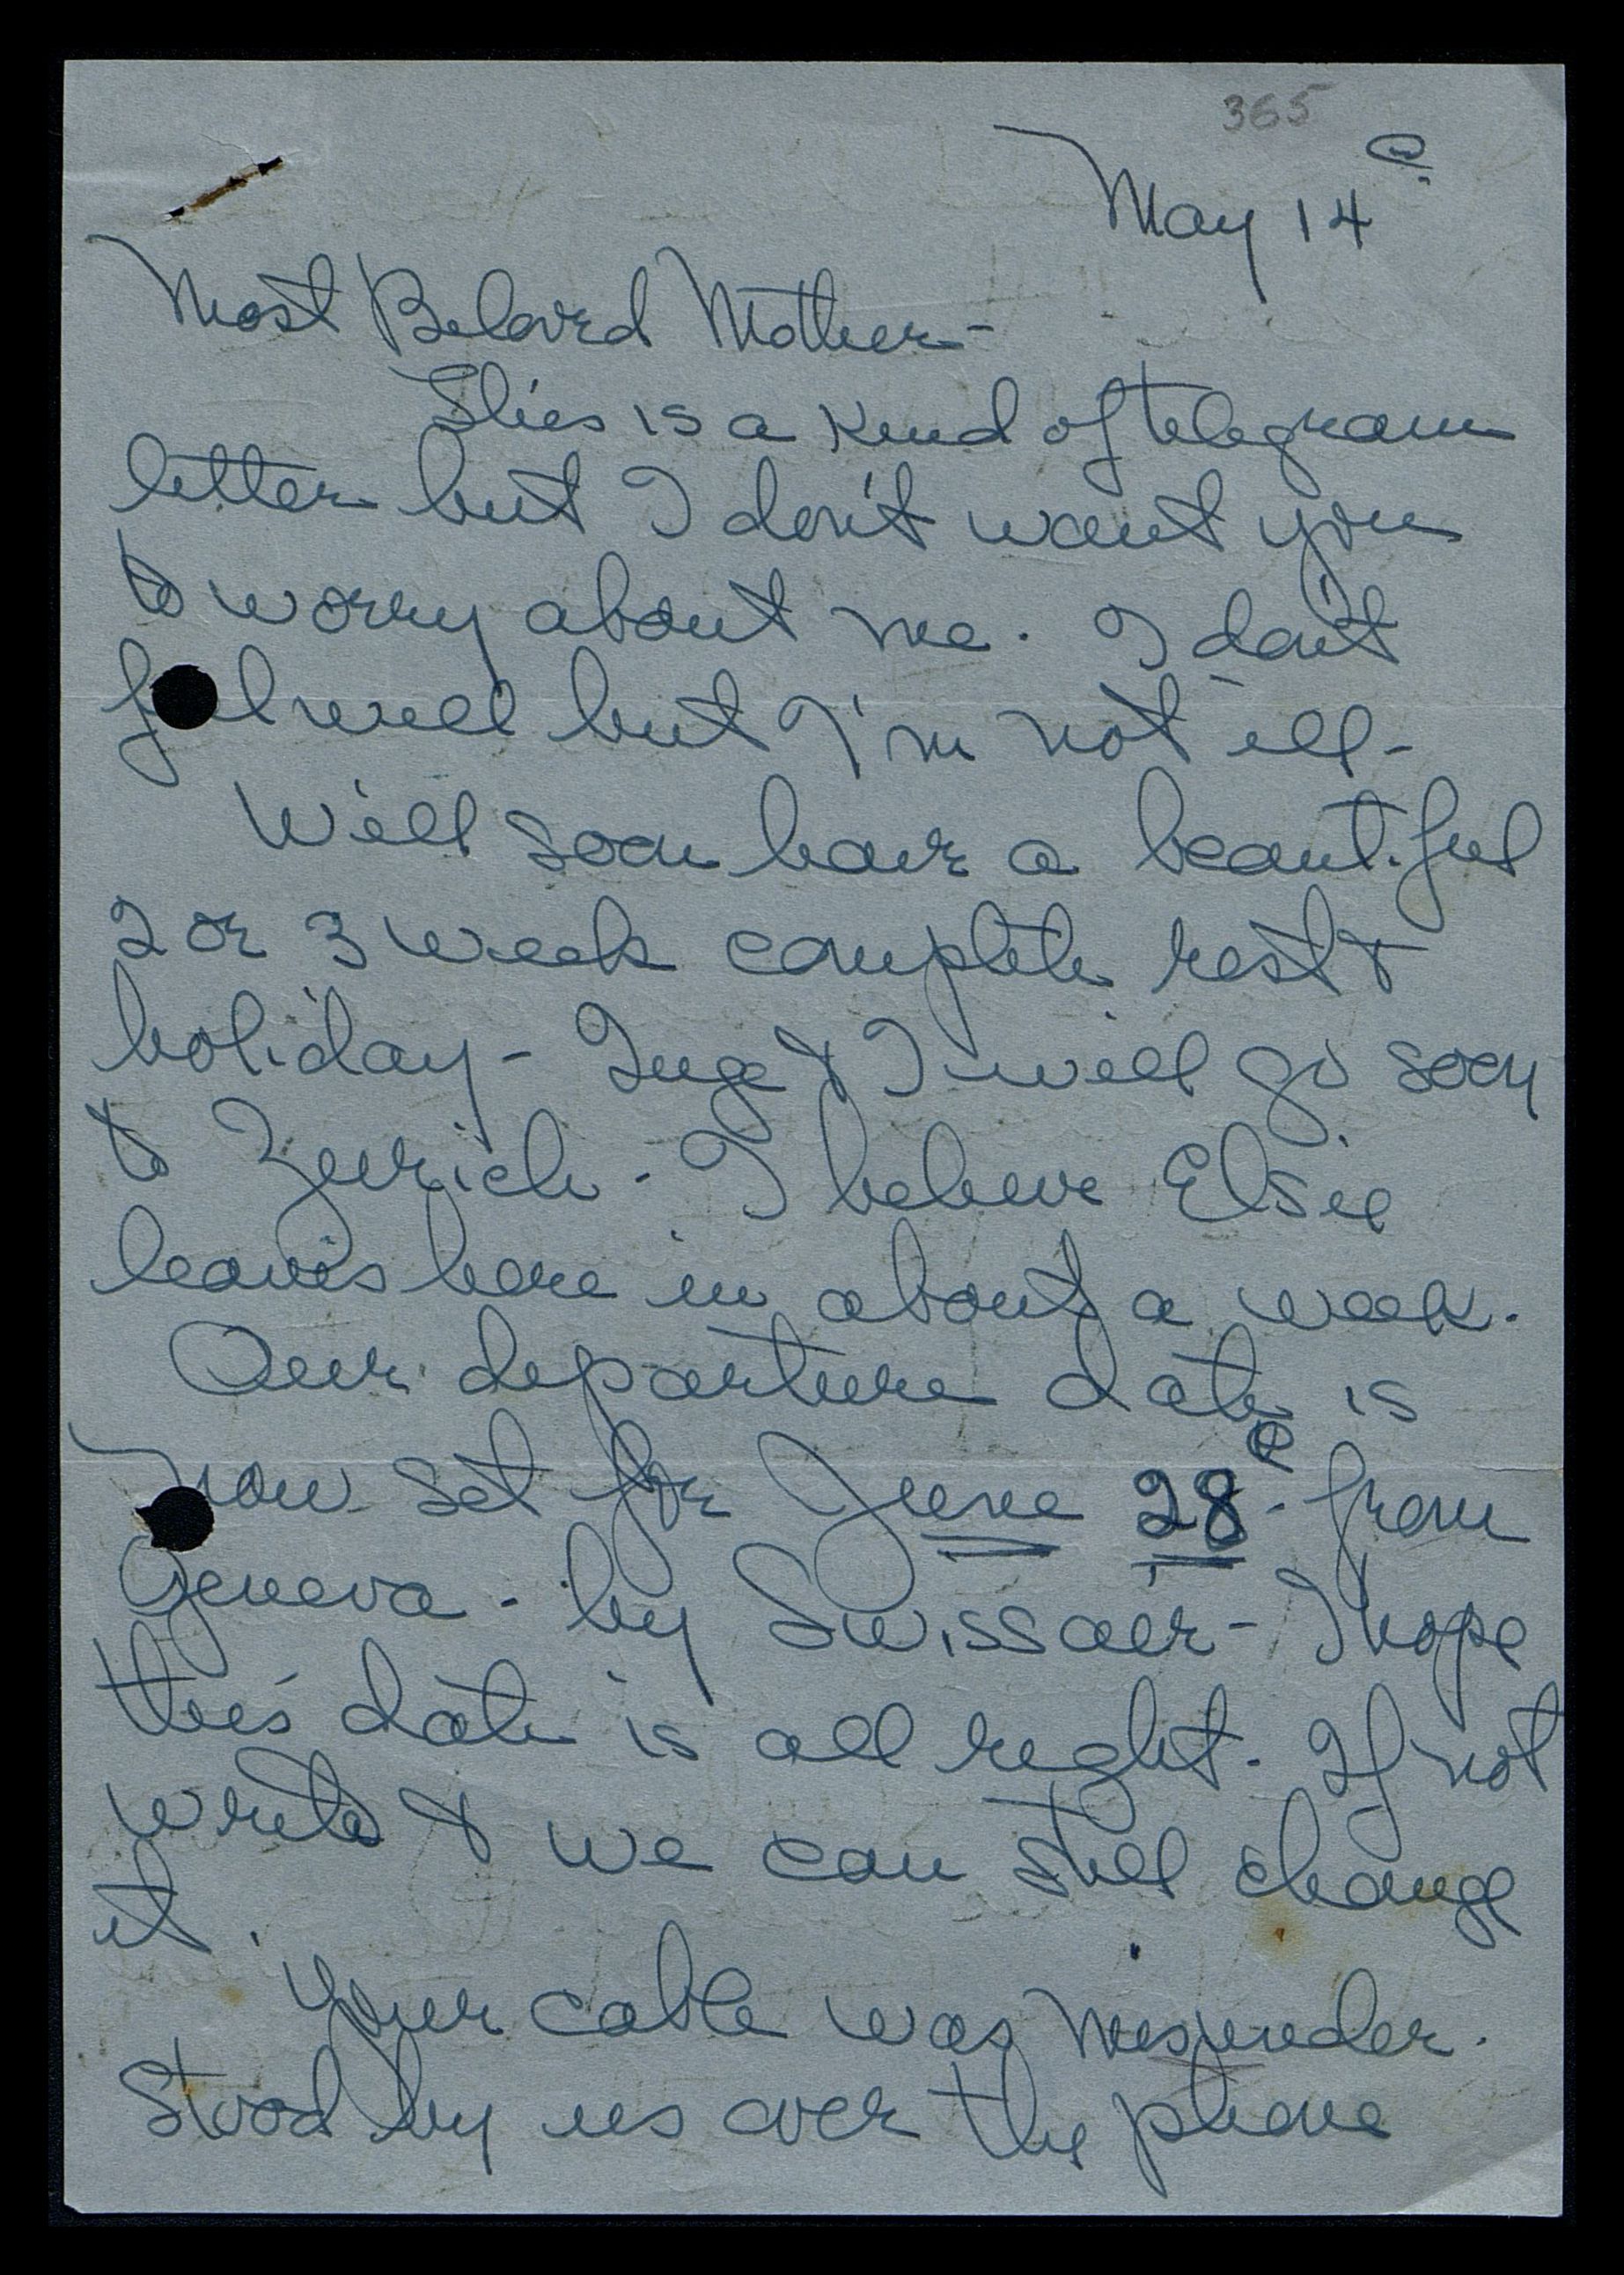 365
May 14
Most Beloved Mother-
This is a kind of telegram
letter but I don't want you
to worry about me. I don't
feel well but I'm not ill-
Will soon have a beautiful
2 or 3 week complete rest &
holiday - Inge & I will go soon
to Zurich. I believe Elsie
leaves here in about a week.
Our departure date is
now set for June 28 - from
Geneva - by Swissair - I hope
this date is all right. If not
write & we can still change
it.
Your cable was misunder-
stood by us over the phone